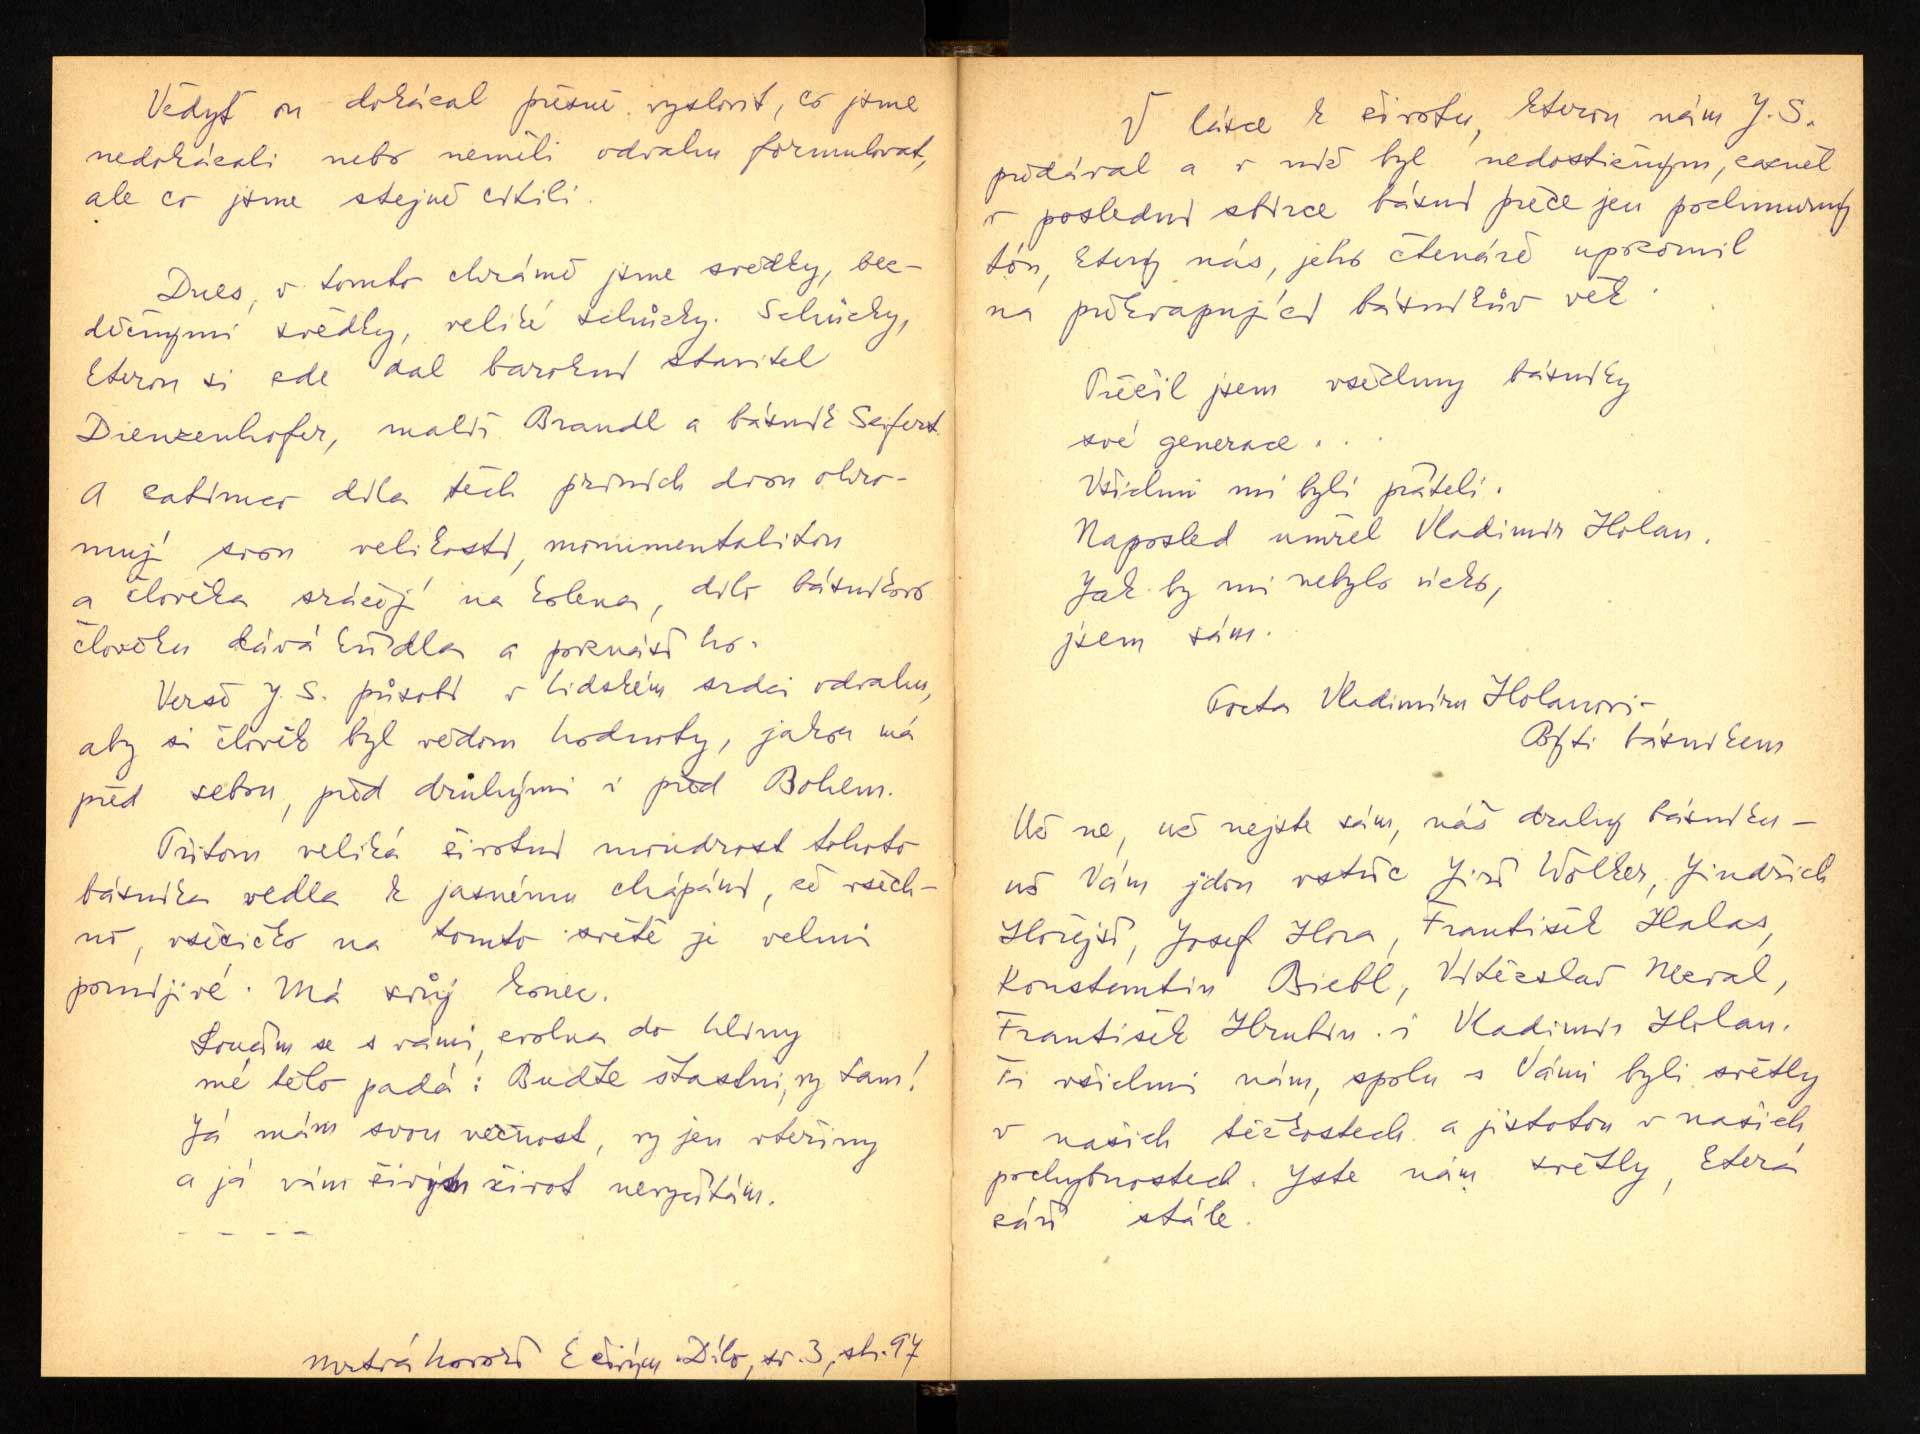 Vědyť on dokázal přesně vyslovit, co jsme
nedokázali nebo neměli odvahu formulovat,
ale co jsme stejně cítili.
Dnes, v tomto chrámě jsme svědky, bez-
děčnými svědky, veliké schůzky. Schůzky,
kterou si zde dal barokní stavitel
Dienzenhofer, malíř Brandl a básník Seifert.
A zatímco díla těch prvních dvou ohro-
mují svou velikostí, monumentalitou
a člověka srážejí na kolena, dílo básníkovo
člověku dává křídla a povznáší ho.
Verše J. S. působí v lidském srdci odvahu,
aby si člověk byl vědom hodnoty, jakou má
před sebou, před druhými i před Bohem.
Přitom veliká životní moudrost tohoto
básníka vedla k jasnému chápání, že všech-
no, všecičko na tomto světě je velmi
pomíjivé. Má svůj konec.
Loučím se s vámi, zvolna do hlíny
mé tělo padá: Buďte šťastni, vy tam!
Já mám svou věčnost, vy jen vteřiny
a já vám živým život nevyčítám.
- - - -
Mrtvá hovoří k živým Dílo, sv. 3, str. 97
V lásce k životu, kterou nám J. S.
předával a v níž byl nedostižným, zazněl
v poslední sbírce básní přece jen pochmurný
tón, který nás, jeho čtenáře upozornil
na překvapující básníkův věk.
Přežil jsem všechny básníky
své generace . . .
Všichni mi byli přáteli.
Naposled umřel Vladimír Holan.
Jak by mi nebylo úzko,
jsem sám.
Pocta Vladimíru Holanovi -
Býti básníkem
Už ne, už nejste sám, náš drahý básníku -
už Vám jdou vstříc Jiří Wolker, Jindřich
Hořejší, Josef Hora, František Halas,
Konstantin Biebl, Vítězslav Nezval,
František Hrubín i Vladimír Holan.
Ti všichni nám, spolu s Vámi byli světly
v našich těžkostech a jistotou v našich
pochybnostech. Jste nám světly, která
září stále.